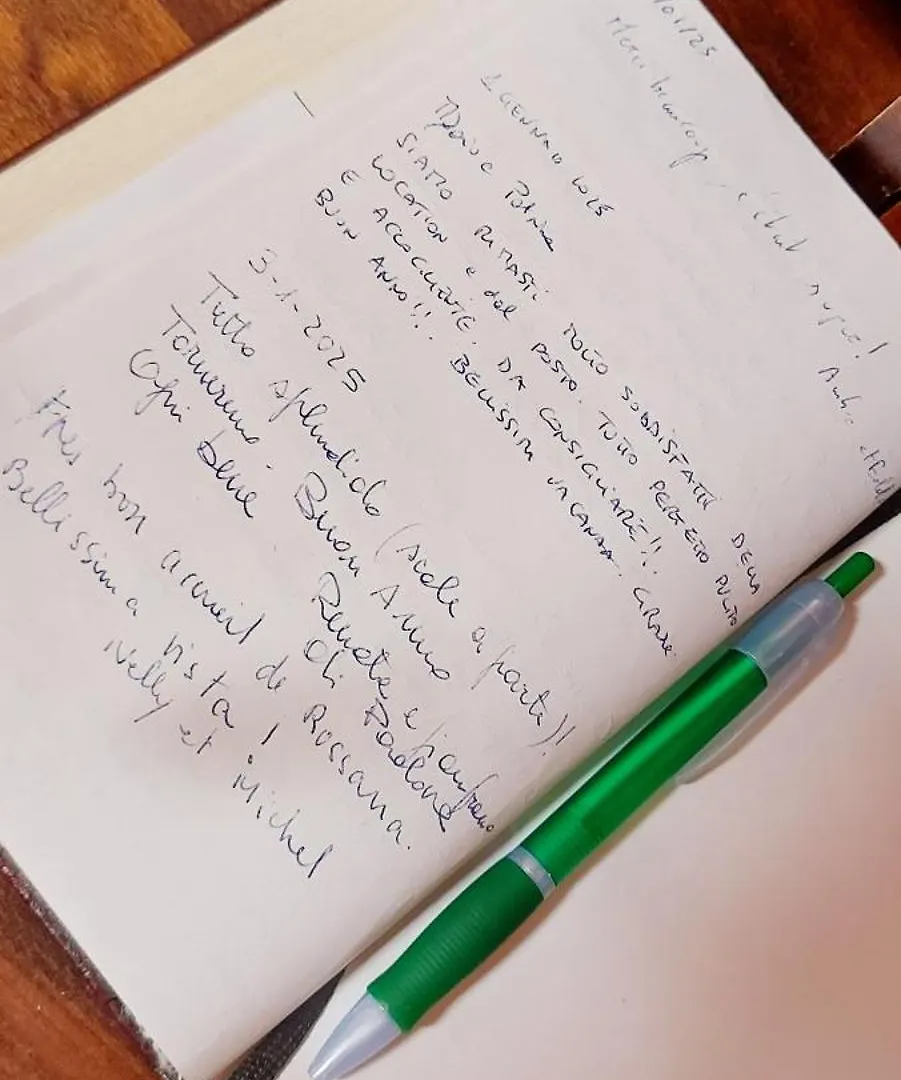 /01/25
Merci beaucoup, c'était super!
1 GENNAIO 2025
SIAMO RIMASTI MOLTO SODDISFATTI DELLA
LOCATION e del POSTO. TUTTO PERFETTO PULITO
E ACCOGLIENTE. DA CONSIGLIARE!!. GRAZIE
BUON ANNO!!. BELLISSIMA VACANZA.
3-1-2025
Tutto splendido (scale a parte)!
Torneremo Buon Anno
Ogni bene Renata e
Di Padova
Très bon accueil de Rossana.
Bellissima vista!
Nelly et Michel